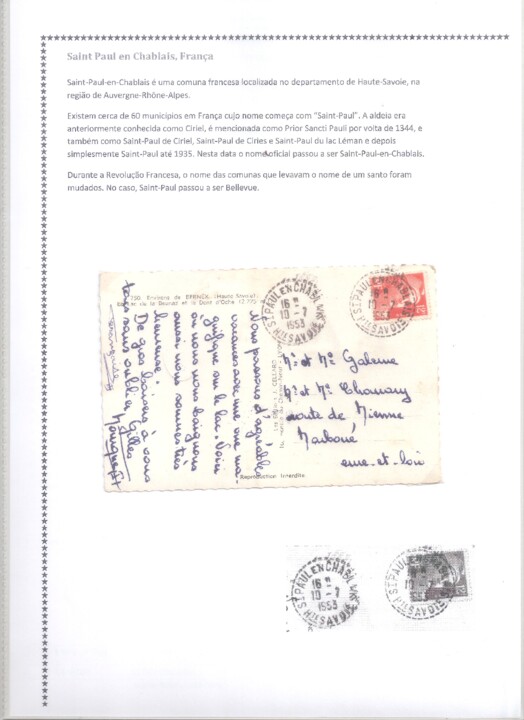 Saint Paul en Chablais, França
Saint-Paul-en-Chablais é uma comuna francesa localizada no departamento de Haute-Savoie, na
região de Auvergne-Rhône-Alpes.
Existem cerca de 60 municípios em França cujo nome começa com "Saint-Paul". A aldeia era
anteriormente conhecida como Ciriel, é mencionada como Prior Sancti Pauli por volta de 1344, e
também como Saint-Paul de Ciriel, Saint-Paul de Ciries e Saint-Paul du lac Léman e depois
simplesmente Saint-Paul até 1935. Nesta data o nome oficial passou a ser Saint-Paul-en-Chablais.
Durante a Revolução Francesa, o nome das comunas que levavam o nome de um santo foram
mudados. No caso, Saint-Paul passou a ser Bellevue.
750. Environs de (Haute-Savoie)
et la Dent d'Oche
ST PAUL EN CHABLAIS
16 H
10 - 7
1953
HTE SAVOIE
Nous passons d'agréables
vacances avec une vue ma-
gnifique sur le lac Léman
où nous nous baignons
aussi nous sommes très
heureuse.
De gros baisers à vous
tous sans oublier Gilles
Françoise
Monique
Mr et Me
Mr et Me
route de Vienne
Marboué
eure-et-loir
Reproduction Interdite
ST PAUL EN CHABLAIS
16 H
10 - 7
1953
HTE SAVOIE